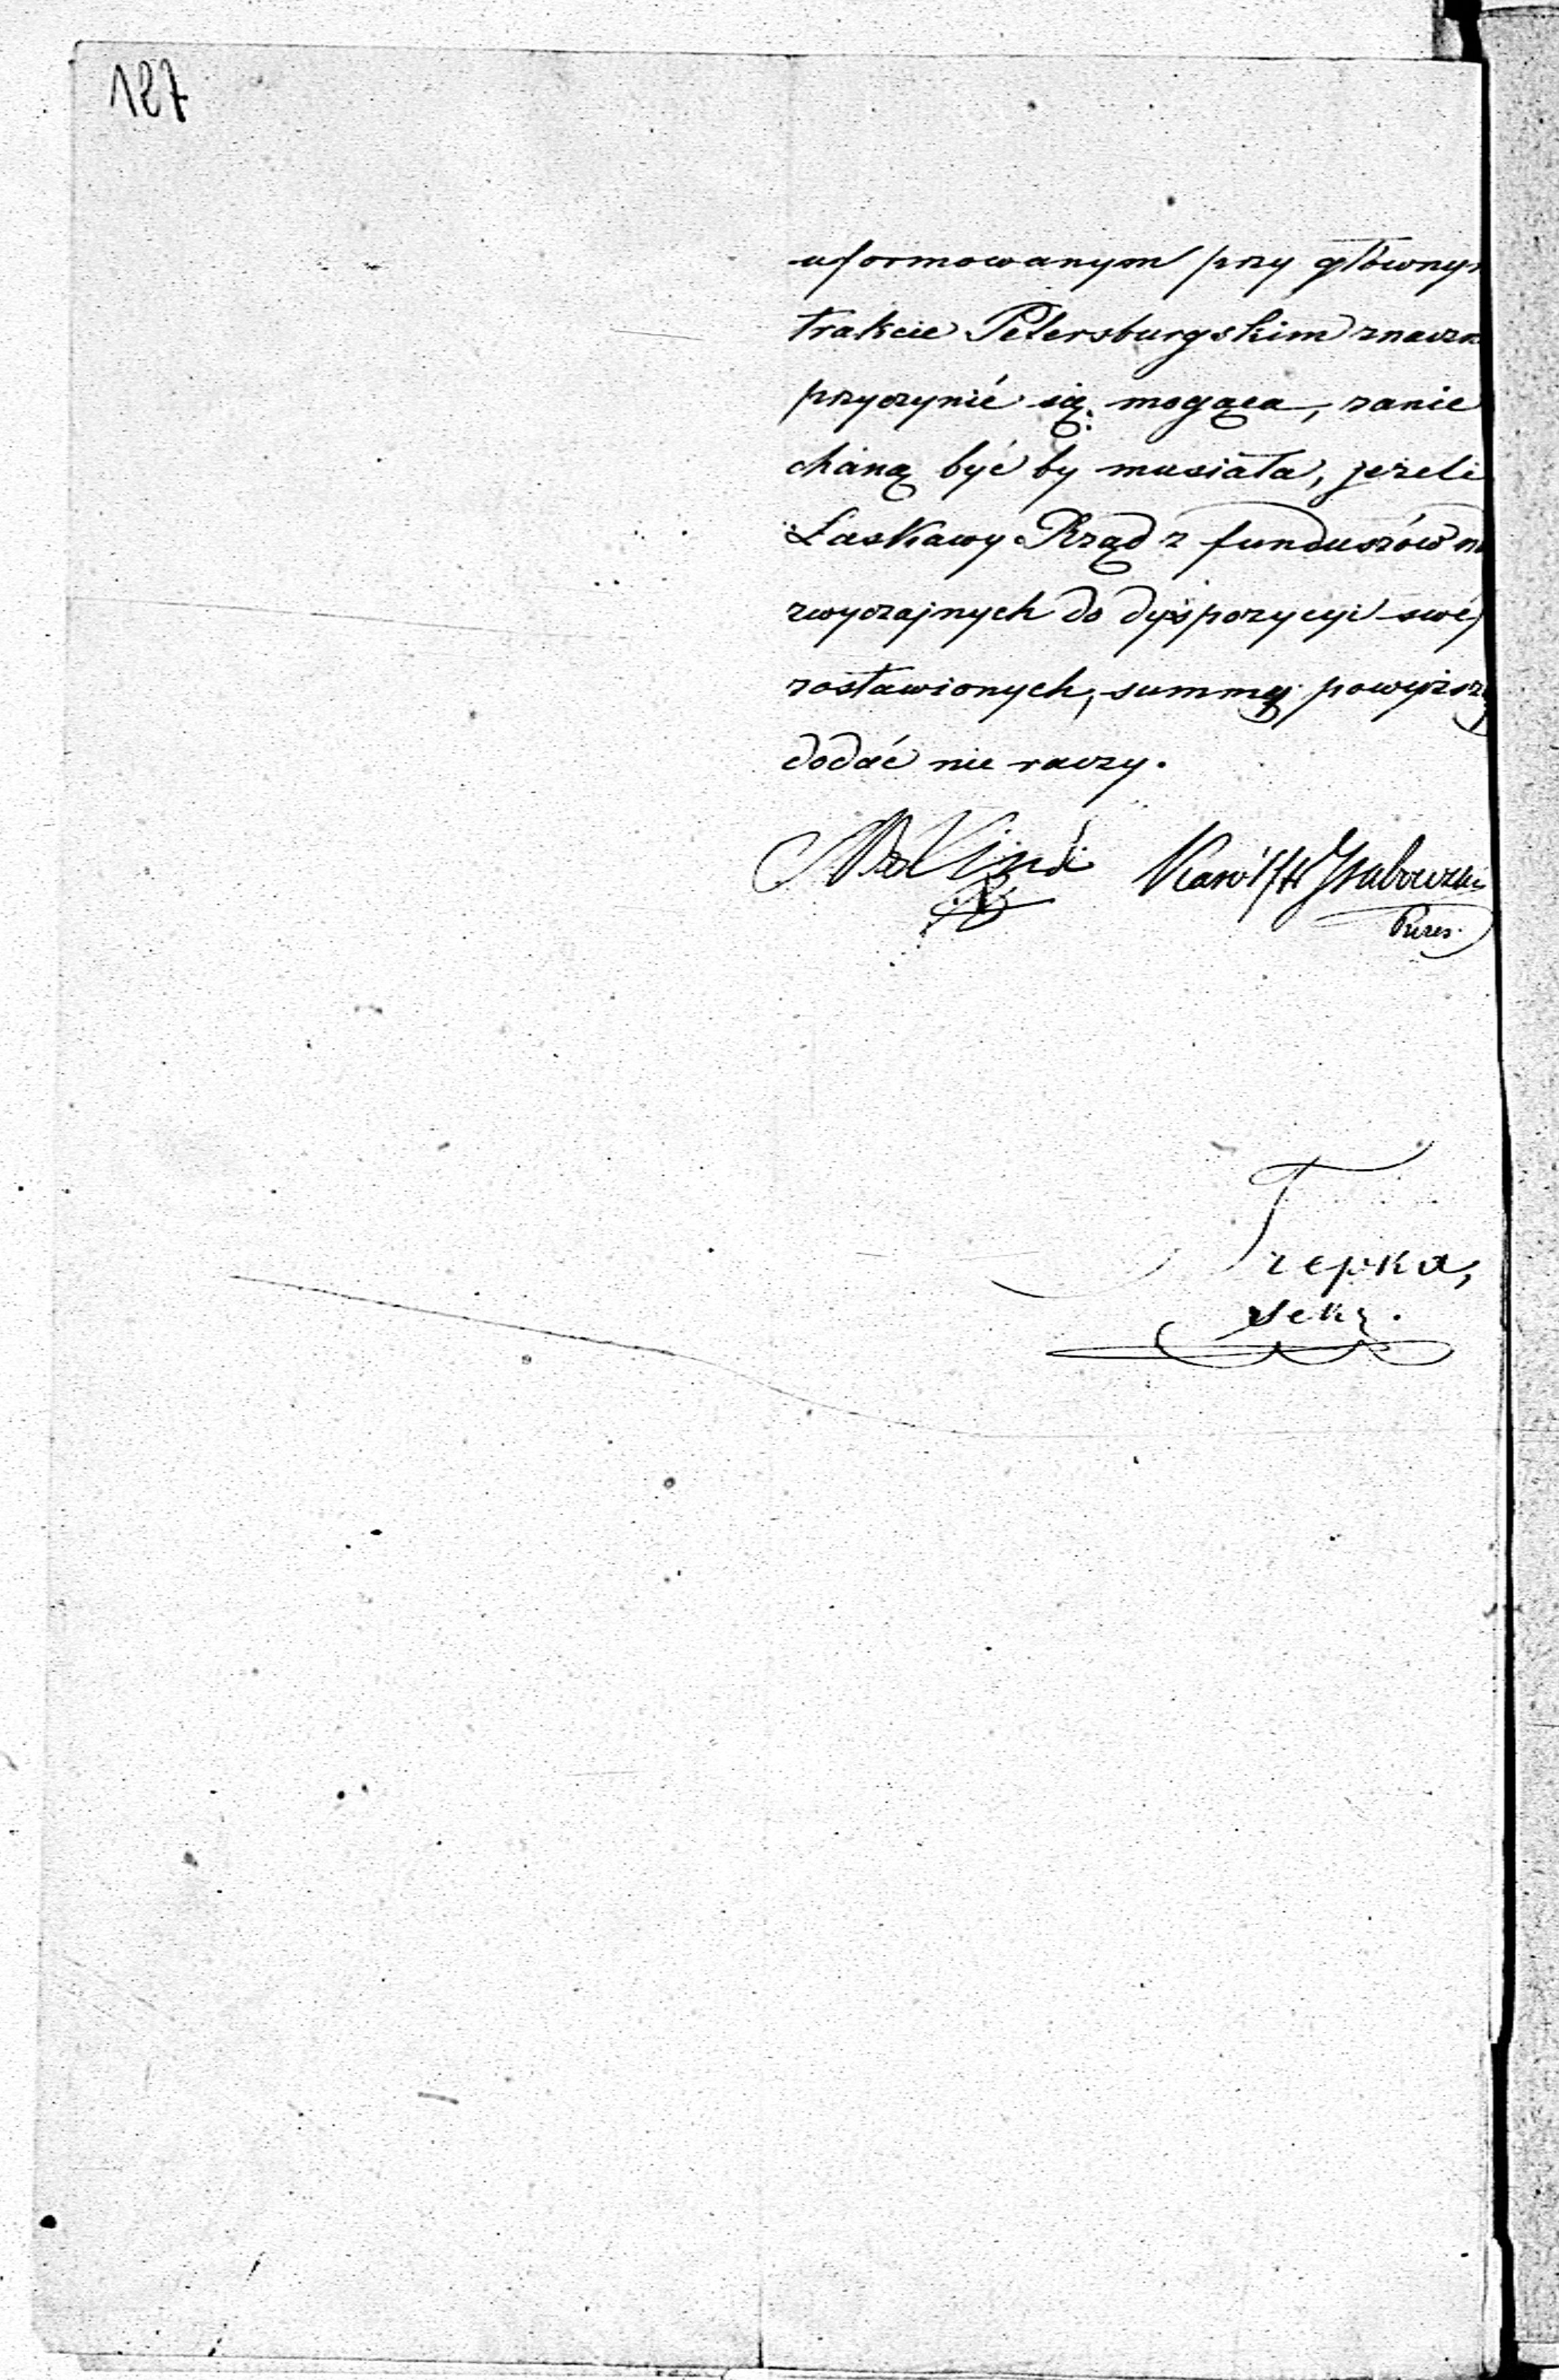 187
uformowanym przy główny
trakcie Petersburgskim znaczn
przyczynić się mogąca, zanie
chaną być by musiała, jeżeli
Łaskawy Rząd z funduszów n
zwyczajnych do dyspozycyi swéj
zostawionych, summy powyższ
dodać nie raczy.
Karól
Prezes.
Trepka,
Sekr.